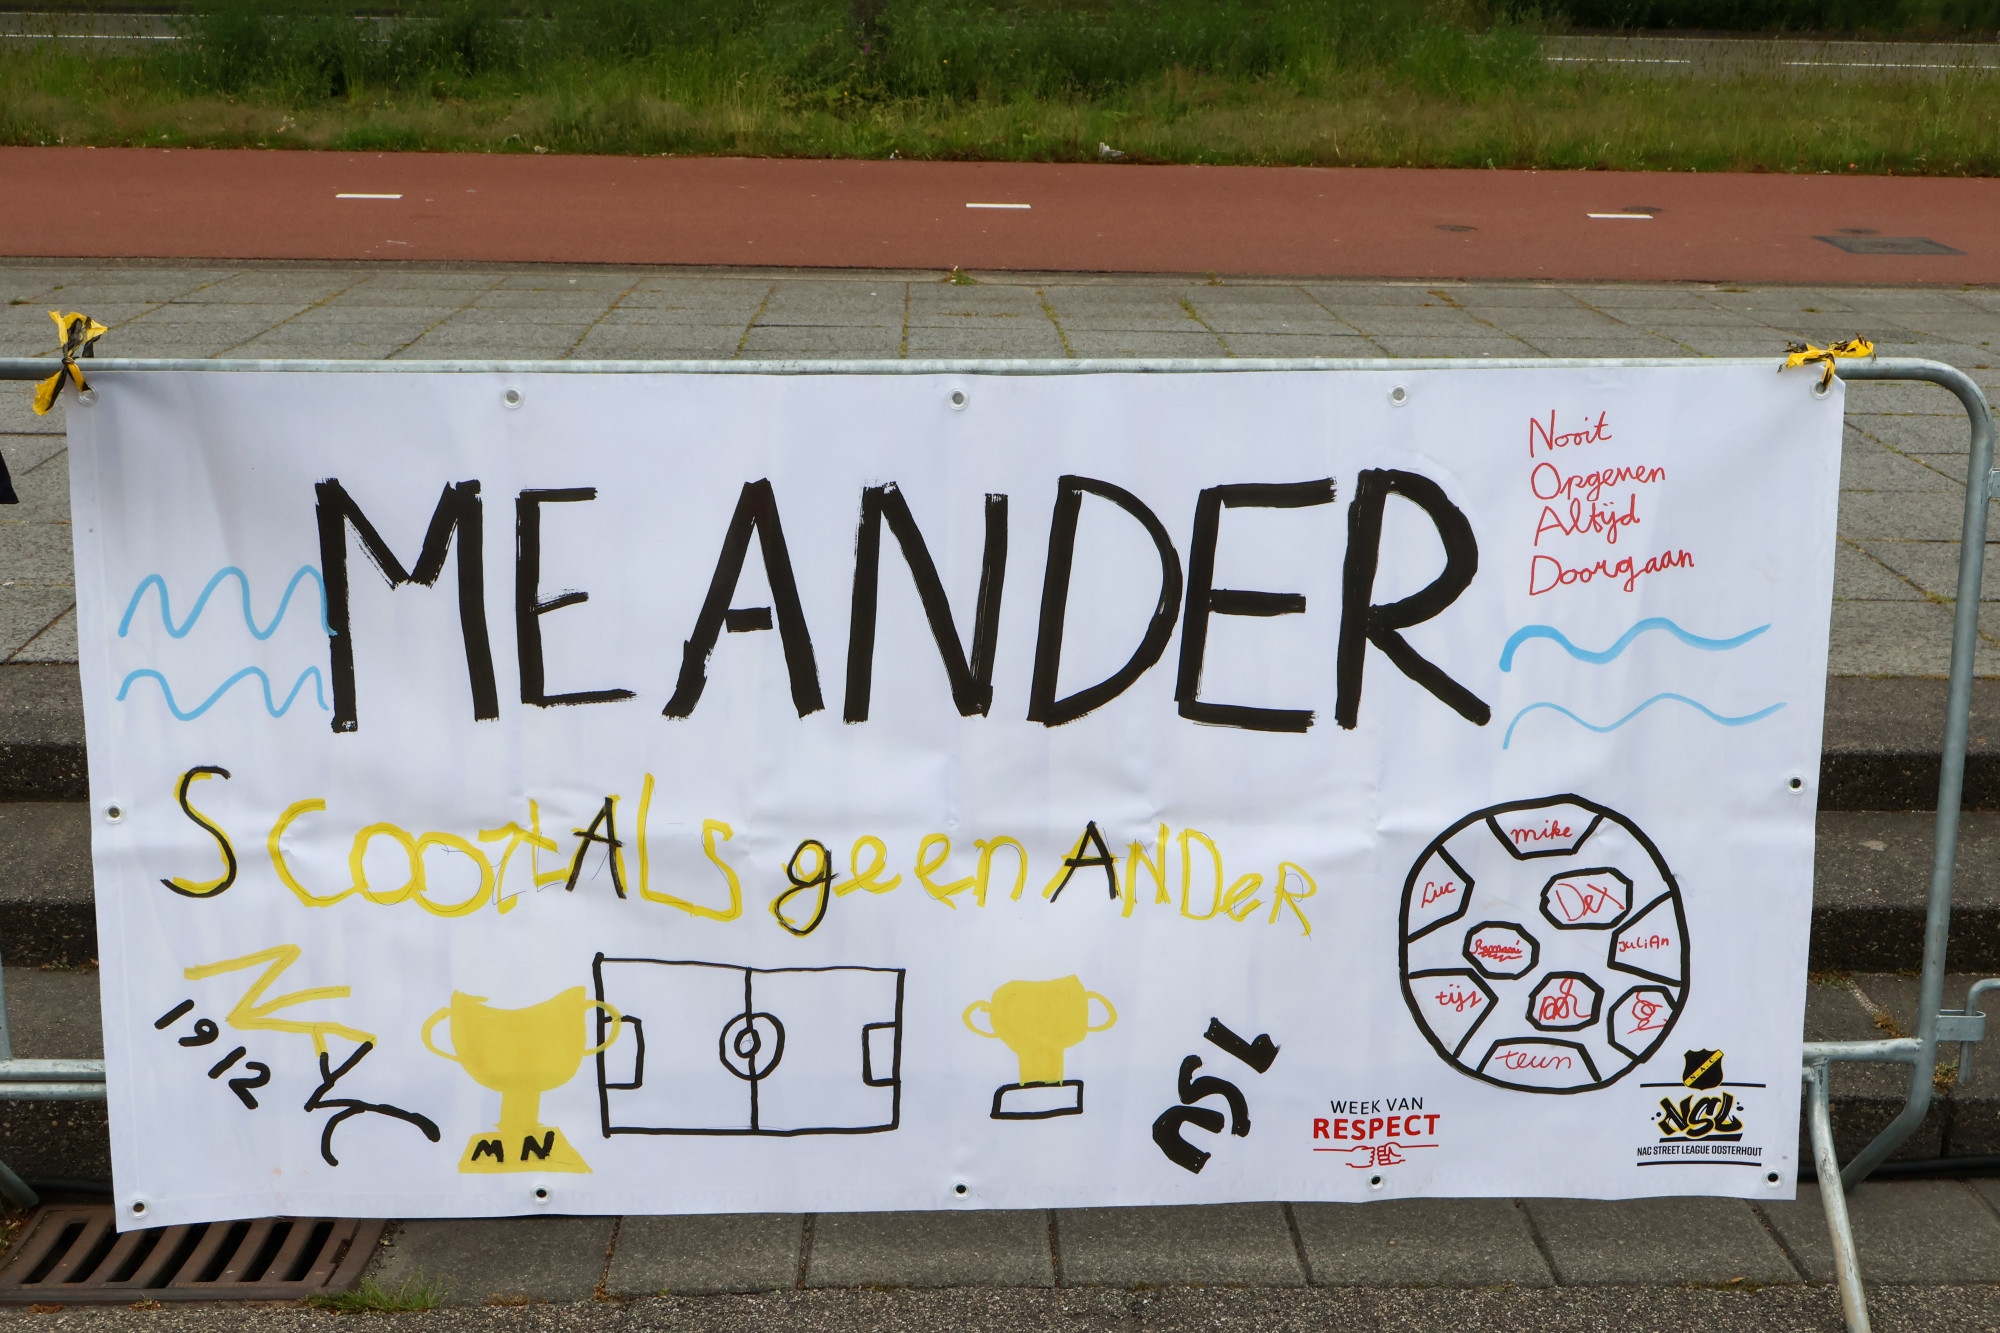 MEANDER
Nooit
Opgeven
Altijd
Doorgaan
ScoortAls geen ANDeR
NAC
1912
MN
NSL
mike
Luc
Dex
Romani
JuliAn
tijs
teun
WEEK VAN
RESPECT
NAC
NSL
NAC STREET LEAGUE OOSTERHOUT